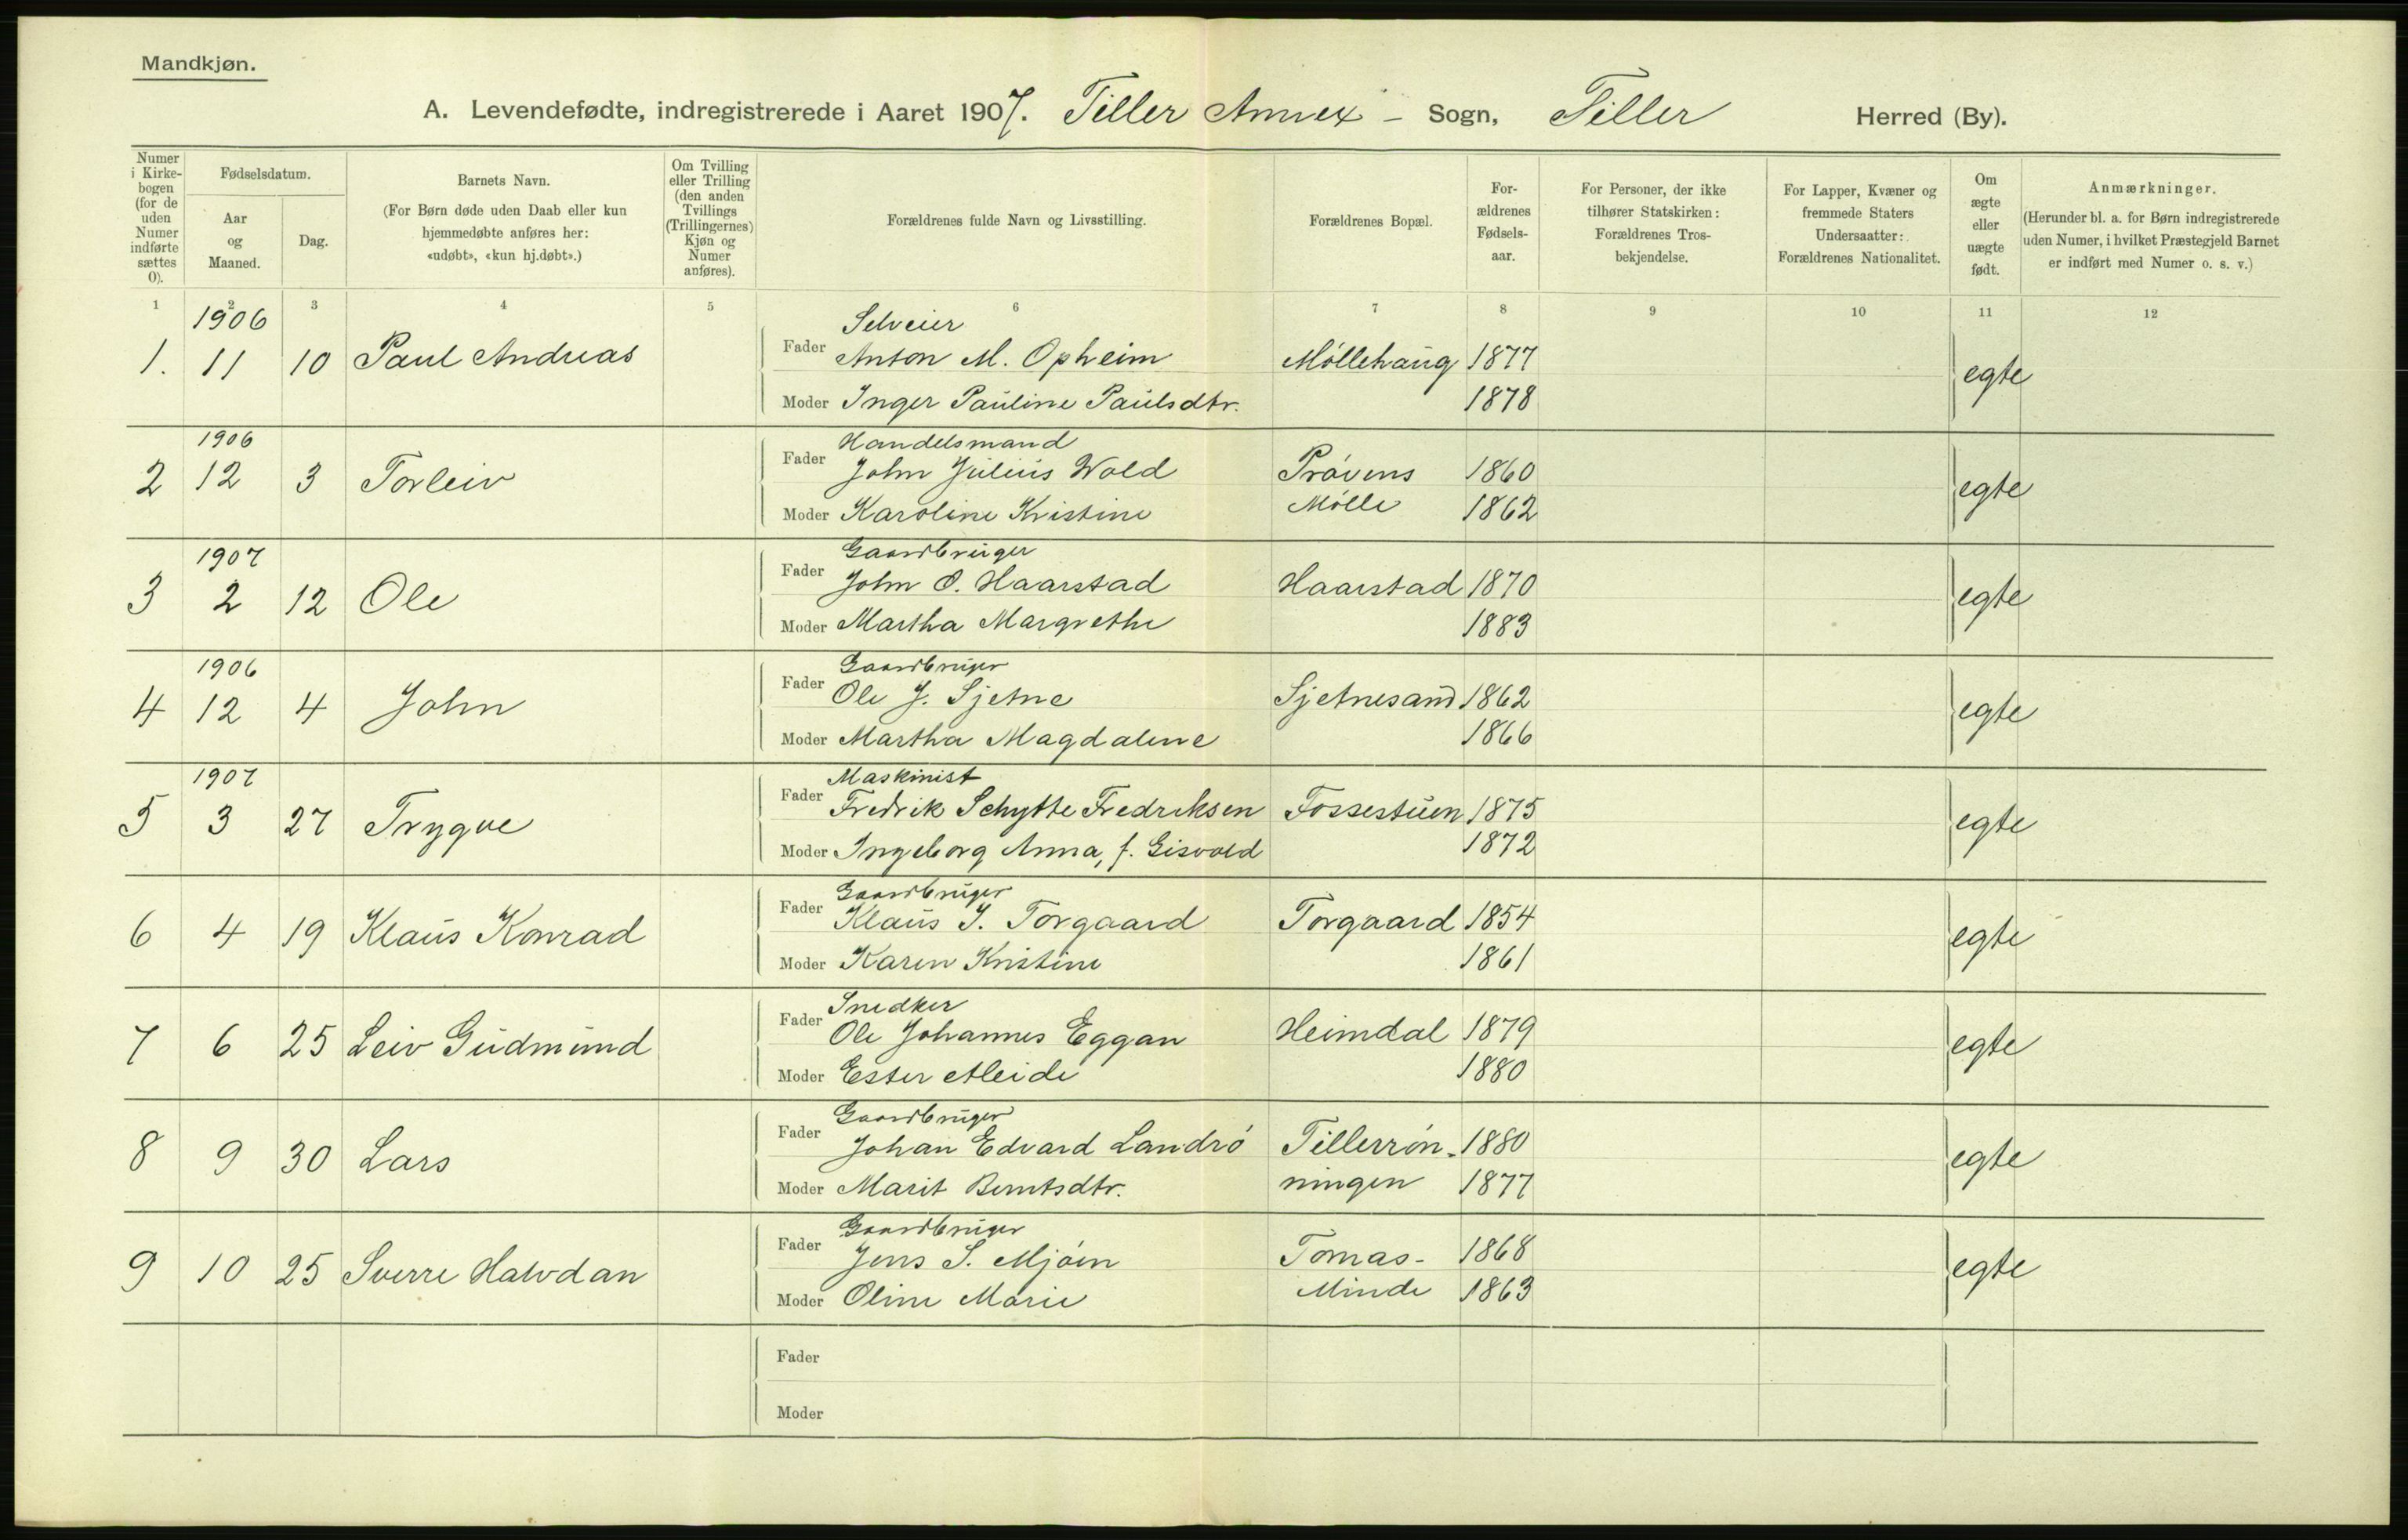 Mandkjøn.
A. Levendefødte, indregistrerede i Aaret 1907. Tiller Annex - Sogn, Tiller Herred (By).
Numer i Kirke-bogen (for de uden Numer indførte sættes 0).
Fødselsdatum.
Aar og Maaned.
Dag.
Barnets Navn.
(For Børn døde uden Daab eller kun hjemmedøbte anføres her: «udøbt», «kun hj.døbt».)
Om Tvilling eller Trilling (den anden Tvillings (Trillingernes) Kjøn og Numer anføres).
Forældrenes fulde Navn og Livsstilling.
Forældrenes Bopæl.
For-ældrenes Fødsels-aar.
For Personer, der ikke tilhører Statskirken: Forældrenes Tros-bekjendelse.
For Lapper, Kvæner og fremmede Staters Undersaatter: Forældrenes Nationalitet.
Om ægte eller uægte født.
Anmærkninger.
(Herunder bl. a. for Børn indregistrerede uden Numer, i hvilket Præstegjeld Barnet er indført med Numer o. s. v.)
1 2 3 4 5 6 7 8 9 10 11 12
1906 Selveier
1. 11 10 Paul Andreas Fader Anton M. Opheim Möllehaug 1877 egte
Moder Inger Pauline Paulsdtr. 1878
1906 Handelsmand
2 12 3 Torleiv Fader John Julius Wold Prövens 1860 egte
Moder Karoline Kristine Mölle 1862
1907 Gaardbruger
3 2 12 Ole Fader John O. Haarstad Haarstad 1870 egte
Moder Martha Margrethe 1883
1906 Gaardbruger
4 12 4 John Fader Ole J. Sjetne Sjetnesand 1862 egte
Moder Martha Magdalene 1866
1907 Maskinist
5 3 27 Trygve Fader Fredrik Schytte Fredriksen Fossestuen 1875 egte
Moder Ingeborg Anna, f. Gisvold 1872
Gaardbruger
6 4 19 Klaus Konrad Fader Klaus J. Torgaard Torgaard 1854 egte
Moder Karen Kristine 1861
Snedker
7 6 25 Leiv Gudmund Fader Ole Johannes Eggan Heimdal 1879 egte
Moder Ester Aleide 1880
Gaardbruger
8 9 30 Lars Fader Johan Edvard Landrö Tillerrön- 1880 egte
Moder Marit Berntsdtr. ningen 1877
Gaardbruger
9 10 25 Sverre Halvdan Fader Jens S. Mjöen Tomas- 1868 egte
Moder Oline Marie Minde 1863
Fader
Moder